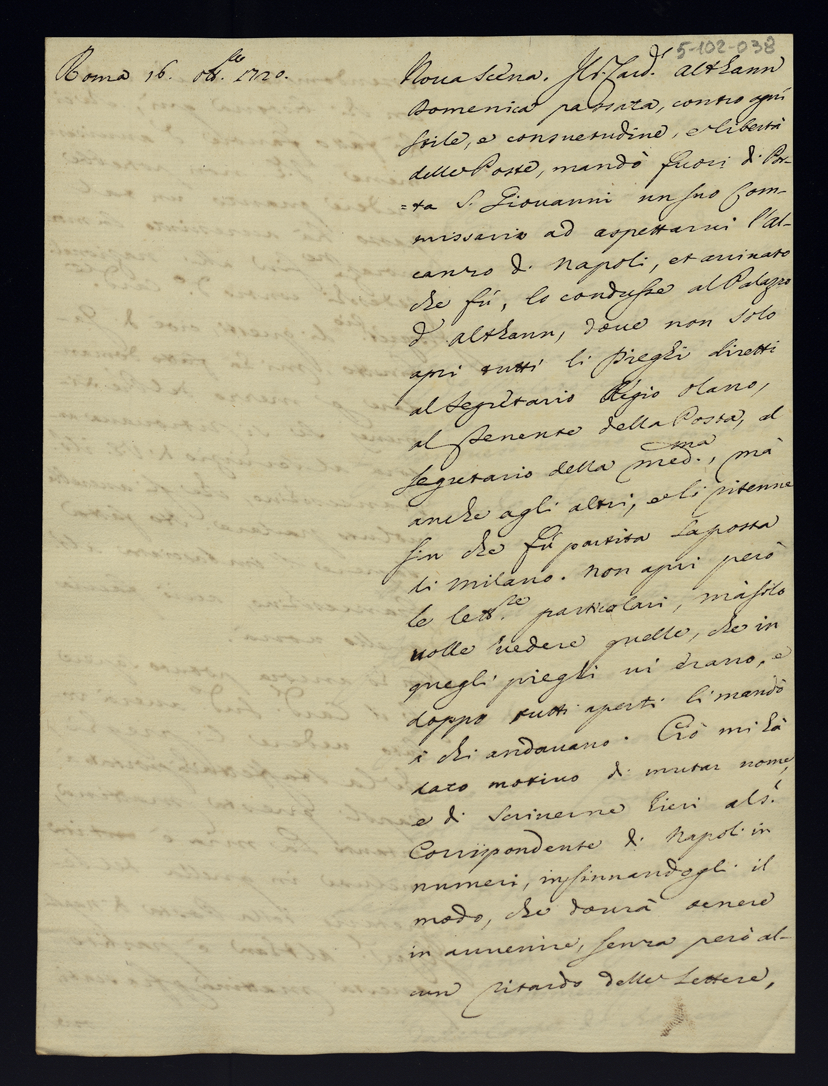 5-102-038
Roma 16. ott.bre 1720.
Nova scena. Il S.r Card.l Althann
Domenica passata, contro ogni
stile, e consuetudine, e libertà
delle Poste, mandò fuori di Por-
=ta S. Giovanni un suo Com-
missario ad aspettarvi l'al-
canzo di Napoli, et arrivato
che fù, lo condusse al Palazzo
d'Althann, dove non solo
aprì tutti li Pieghi diretti
al Segretario Regio Olano,
al Tenente della Posta, al
segretario della med.ma, mà
anche agli altri, e li ritenne
sin che fù partita la posta
di Milano. Non aprì però
le lett.re particolari, mà solo
volle vedere quelle, che in
quegli pieghi vi erano, e
doppo tutti aperti li mandò
à chi andavano. Ciò mi hà
dato motivo di mutar nome,
e di scriverne hieri al S.r
Corrispondente di Napoli in
numeri, insinuandogli il
modo, che dovrà tenere
in avvenire, senza però al-
cun ritardo delle Lettere,